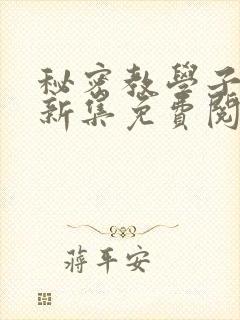 秘密教學子
新集免費閱
蔣平安